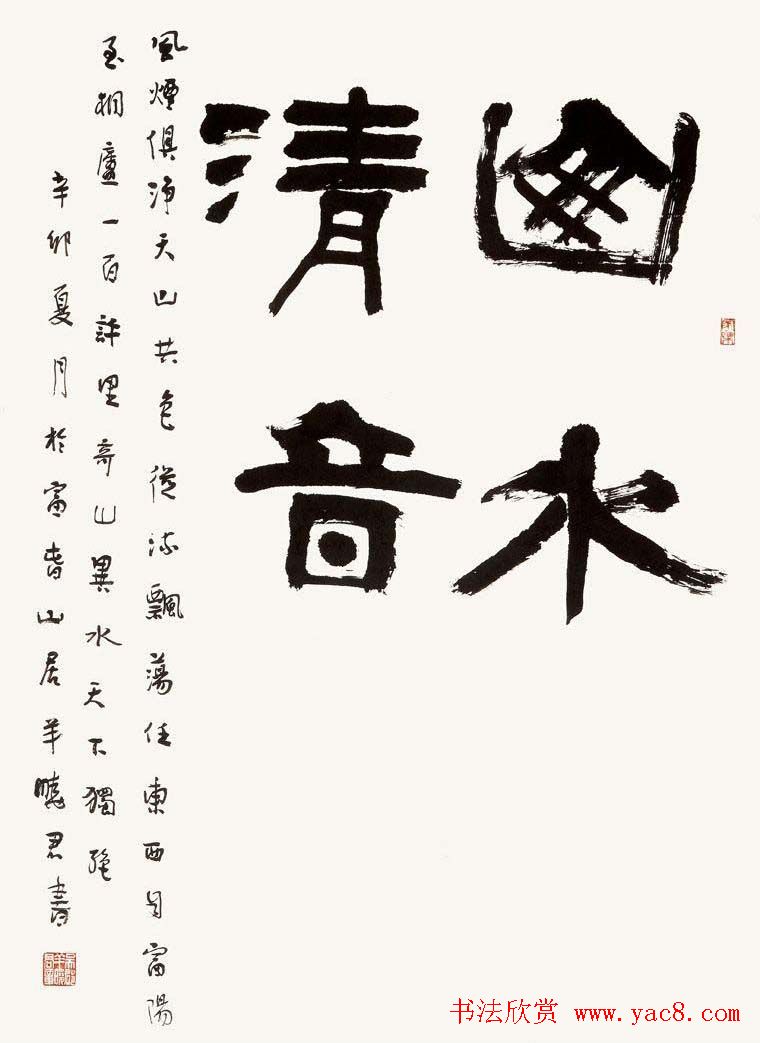 山水
清音
風煙俱淨天山共色從流飄蕩任東西自富陽
至桐廬一百許里奇山異水天下獨絕
辛卯夏月於富春山居羊曉君書
书法欣赏 www.yac8.com